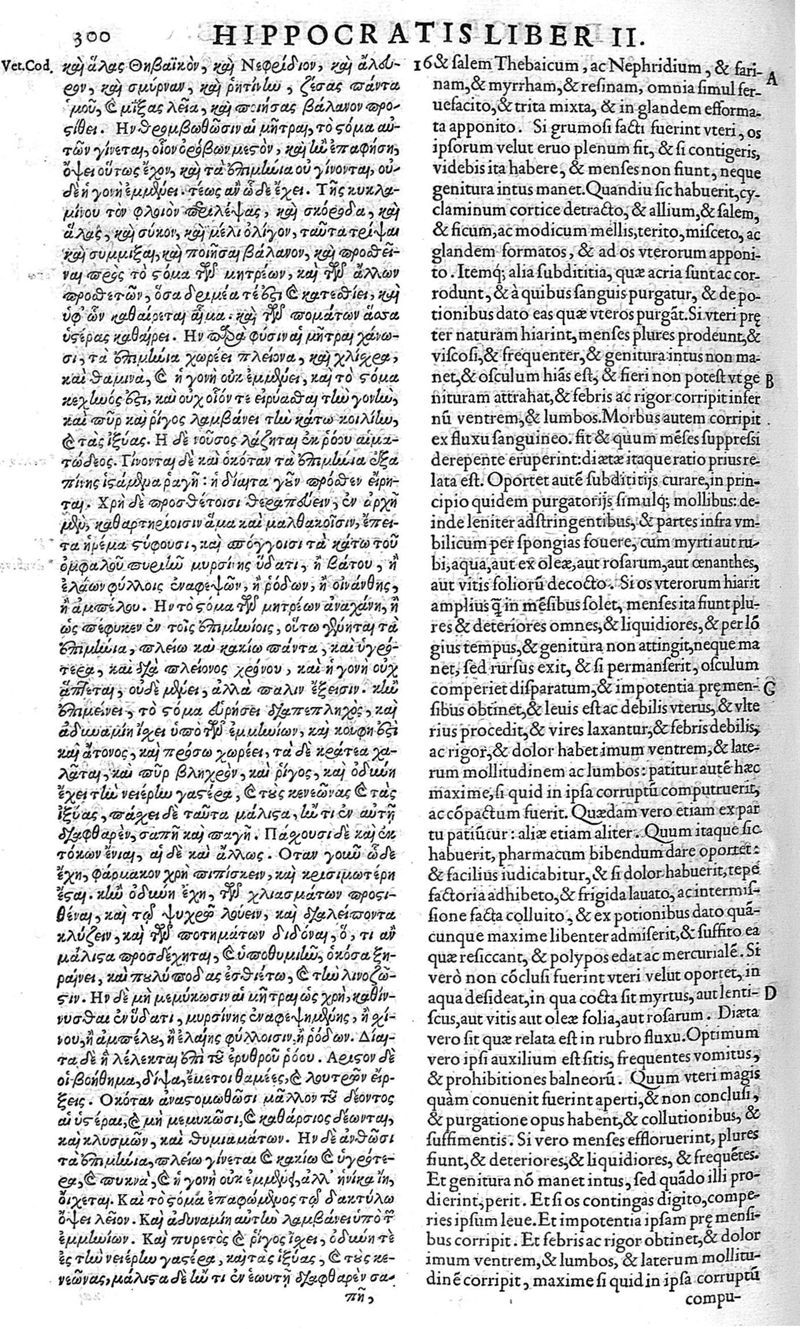 300
HIPPOCRATIS LIBER II.
Vet. Cod.
καὶ ἅλας Θηβαϊκὸν, καὶ Νεφρίδιον, καὶ ἄλευ-
ρον, καὶ σμύρναν, καὶ ῥητίνην, ζέσας πάντα
ὁμοῦ, καὶ μίξας λεῖα, καὶ ποιήσας βάλανον προς-
τίθει. Ἢν θρομβωθῶσιν αἱ μῆτραι, τὸ στόμα αὐ-
τῶν γίνεται, οἷον ὀρόβων μεστὸν, καὶ ἢν ἐπαφήσῃ,
ὄψει οὕτως ἔχον, καὶ τὰ ἐπιμήνια οὐ γίνονται, οὐ-
δὲ ἡ γονὴ ἐμμένει· τέως ἂν ὧδε ἔχει. Τῆς κυκλα-
μίνου τὸν φλοιὸν περιλέψας, καὶ σκόροδα, καὶ
ἅλας, καὶ σῦκον, καὶ μέλι ὀλίγον, ταῦτα τρίψαι
καὶ συμμίξαι, καὶ ποιῆσαι βάλανον, καὶ προσθεῖ-
ναι πρὸς τὸ στόμα τῶν μητρέων, καὶ τῶν ἄλλων
προσθετῶν, ὅσα δριμέα τέ ἐστι καὶ κατεσθίει, καὶ
ὑφ' ὧν καθαίρεται αἷμα· καὶ τῶν πομάτων ἅσσα
ὑστέρας καθαίρει. Ἢν παρὰ φύσιν αἱ μῆτραι χάνω-
σι, τὰ ἐπιμήνια χωρέει πλείονα, καὶ γλίσχρα,
καὶ θαμινὰ, καὶ ἡ γονὴ οὐκ ἐμμένει, καὶ τὸ στόμα
κεχηνός ἐστι, καὶ οὐχ οἷόν τε εἰρύσαι τὴν γονὴν,
καὶ πῦρ καὶ ῥῖγος λαμβάνει τὴν κάτω κοιλίην,
καὶ τὰς ἰξύας. Ἡ δὲ νοῦσος λάζηται ἐκ ῥόου αἱμα-
τώδεος. Γίνονται δὲ καὶ ὁκόταν τὰ ἐπιμήνια ἐξα
πίνης ἱστάμενα ῥαγῇ: ἡ δίαιτα γοῦν πρόσθεν εἴρη-
ται. Χρὴ δὲ προσθέτοισι θεραπεύειν, ἐν ἀρχῇ
μὲν, καθαρτηρίοισιν ἅμα καὶ μαλθακοῖσιν, ἔπει-
τα ἠρέμα στύφουσι, καὶ σπόγγοισι τὰ κάτω τοῦ
ὀμφαλοῦ πυριῆν μυρσίνης ὕδατι, ἢ βάτου, ἢ
ἐλαίων φύλλοις ἐναφεψῶν, ἢ ῥόδων, ἢ οἰνάνθης,
ἢ ἀμπέλου. Ἢν τὸ στόμα τῶν μητρέων ἀναχάνῃ, ἢ
ὡς πέφυκεν ἐν τοῖς ἐπιμηνίοις, οὕτω γίνηται τὰ
ἐπιμήνια, πλείω καὶ κακίω πάντα, καὶ ὑγρό-
τερα, καὶ διὰ πλείονος χρόνου, καὶ ἡ γονὴ οὐχ
ἅπτεται, οὐδὲ μένει, ἀλλὰ πάλιν ἔξεισιν. κἢν
ἐπιμείνει, τὸ στόμα εὑρήσει διαπεπληχὸς, καὶ
ἀδυναμίη ἴσχει ὑπὸ τῶν ἐμμηνίων, καὶ κούφη ἐστὶ
καὶ ἄτονος, καὶ πρόσω χωρέει, τὰ δὲ κράτεα χα-
λᾶται, καὶ πῦρ βληχρὸν, καὶ ῥῖγος, καὶ ὀδύνη
ἔχει τὴν νειέρην γαστέρα, καὶ τοὺς κενεῶνας καὶ τὰς
ἰξύας, πάσχει δὲ ταῦτα μάλιστα, ἤν τι ἐν αὐτῇ
διαφθαρὲν, σαπῇ καὶ παγῇ. Πάσχουσι δὲ καὶ ἐκ
τόκων ἔνιαι, αἱ δὲ καὶ ἄλλως. Ὅταν γοῦν ὧδε
ἔχῃ, φάρμακον χρὴ πιπίσκειν, καὶ κρισιμωτέρη
ἔσται. κἢν ὀδύνη ἔχῃ, τῶν χλιασμάτων προστι-
θέναι, καὶ τῷ ψυχρῷ λούειν, καὶ διαλείποντα
κλύζειν, καὶ τῶν ποτημάτων διδόναι, ὅ, τι ἂν
μάλιστα προσδέχηται, καὶ ὑποθυμιῆν, ὁκόσα ξη-
ραίνει, καὶ πουλύποδας ἐσθιέτω, καὶ τὴν λινοζῶ-
στιν. Ἢν δὲ μὴ μεμύκωσιν αἱ μῆτραι ὡς χρὴ, καθίν-
νυσθαι ἐν ὕδατι, μυρσίνης ἐναφεψημένης, ἢ σχί-
νου, ἢ ἀμπέλου, ἢ ἐλαίης φύλλοισιν, ἢ ῥόδων. Δίαι-
τα δὲ ἢ λέλεκται ἐπὶ τοῦ ἐρυθροῦ ῥόου. Ἄριστον δὲ
οἱ βοήθημα, δίψα, ἔμετοι θαμέες, καὶ λουτρῶν εἴρ-
ξεις. Ὁκόταν ἀναστομωθῶσι μᾶλλον τοῦ δέοντος
αἱ ὑστέραι, καὶ μὴ μεμύκωσι, καὶ καθάρσιος δέονται,
καὶ κλυσμῶν, καὶ θυμιαμάτων. Ἢν δὲ ἀνθῶσι
τὰ ἐπιμήνια, πλείω γίνεται καὶ κακίω καὶ ὑγρότε-
ρα, καὶ πυκνὰ, καὶ ἡ γονὴ οὐκ ἐμμένει, ἀλλ' ἡνίκα ἴῃ,
οἴχεται. Καὶ τὸ στόμα ἐπαφώμενος τῷ δακτύλῳ
ὄψει λεῖον. Καὶ ἀδυναμίη αὐτὴν λαμβάνει ὑπὸ τῶν
ἐμμηνίων. Καὶ πυρετὸς καὶ ῥῖγος ἴσχει, ὀδύνη τε
ἐς τὴν νειέρην γαστέρα, καὶ τὰς ἰξύας, καὶ τοὺς κε-
νεῶνας, μάλιστα δὲ ἤν τι ἐν ἑωυτῇ διαφθαρὲν σα-
πῇ,
16 & salem Thebaicum, ac Nephridium, & fari-
nam, & myrrham, & resinam, omnia simul fer-
uefacito, & trita mixta, & in glandem efforma-
ta apponito. Si grumosi facti fuerint vteri, os
ipsorum velut eruo plenum fit, & si contigeris,
videbis ita habere, & menses non fiunt, neque
genitura intus manet. Quandiu sic habuerit, cy-
claminum cortice detracto, & allium, & salem,
& ficum, ac modicum mellis, terito, misceto, ac
glandem formatos, & ad os vterorum apponi-
to. Itemq; alia subdititia, quæ acria sunt ac cor-
rodunt, & à quibus sanguis purgatur, & de po-
tionibus dato eas quæ vteros purgāt. Si vteri prę
ter naturam hiarint, menses plures prodeunt, &
viscosi, & frequenter, & genitura intus non ma-
net, & osculum hiās est, & fieri non potest vt ge
nituram attrahat, & febris ac rigor corripit infer
nū ventrem, & lumbos. Morbus autem corripit
ex fluxu sanguineo. fit & quum mēses suppressi
derepente eruperint: diætæ itaque ratio prius re-
lata est. Oportet autē subdititijs curare, in prin-
cipio quidem purgatorijs simulq; mollibus: de-
inde leniter adstringentibus, & partes infra vm-
bilicum per spongias fouere, cum myrti aut ru-
bi, aqua, aut ex oleæ, aut rosarum, aut œnanthes,
aut vitis foliorū decocto. Si os vterorum hiarit
amplius q̃ in mēsibus solet, menses ita fiunt plu-
res & deteriores omnes, & liquidiores, & per lō
gius tempus, & genitura non attingit, neque ma
net, sed rursus exit, & si permanserit, osculum
comperiet disparatum, & impotentia prę men-
sibus obtinet, & leuis est ac debilis vterus, & vlte
rius procedit, & vires laxantur, & febris debilis,
ac rigor, & dolor habet imum ventrem, & late-
rum mollitudinem ac lumbos: patitur autē hæc
maxime, si quid in ipsa corruptū computruerit,
ac cōpactum fuerit. Quædam vero etiam ex par
tu patiūtur: aliæ etiam aliter. Quum itaque sic
habuerit, pharmacum bibendum dare oportet:
& facilius iudicabitur, & si dolor habuerit, tepe
factoria adhibeto, & frigida lauato, ac intermis-
sione facta colluito, & ex potionibus dato quā-
cunque maxime libenter admiserit, & suffito ea
quæ resiccant, & polypos edat ac mercurialē. Si
verò non cōclusi fuerint vteri velut oportet, in
aqua desideat, in qua cocta sit myrtus, aut lenti-
scus, aut vitis aut oleæ folia, aut rosarum. Diæta
vero sit quæ relata est in rubro fluxu. Optimum
vero ipsi auxilium est sitis, frequentes vomitus,
& prohibitiones balneorū. Quum vteri magis
quàm conuenit fuerint aperti, & non conclusi,
& purgatione opus habent, & collutionibus, &
suffimentis. Si vero menses effloruerint, plures
fiunt, & deteriores, & liquidiores, & frequētes.
Et genitura nō manet intus, sed quādo illi pro-
dierint, perit. Et si os contingas digito, compe-
ries ipsum leue. Et impotentia ipsam prę mensi-
bus corripit. Et febris ac rigor obtinet, & dolor
imum ventrem, & lumbos, & laterum mollitu-
dinē corripit, maxime si quid in ipsa corruptū
compu-
A
B
C
D